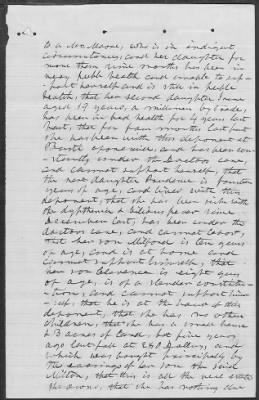 to a Mr Moore, who is in indigent
circumstances, and her daughter for
more than nine months has been in
very feeble health and unable to sup-
port herself and is still in feeble
health, that her second daughter Irene
aged 19 years, a milliner by trade,
has been in bad health for 4 years last
past, that for four months last past
she has been with this deponent at
expense, and has been con-
stantly under the Doctors care,
and cannot support herself, that
the next daughter Prudence is fourteen
years of age, and lives with this
deponent, that she has been sick with
the diphtheria & since
December last, has been under the
doctors care, and cannot labor,
that her son Milford is ten years
of age, and is at home and
cannot support himself, that
her son Clarence is eight years
of age, is of a slender constitu-
tion, and cannot support him-
self, that he is at the house of this
deponent, that she has no other
children, that she has a small house
& 3 acres of land, for five years
ago last fall at 280 Dollars, and
which was bought principally by
the earnings of her son the said
Milton, that this is all the real estate
she owns, that she has nothing